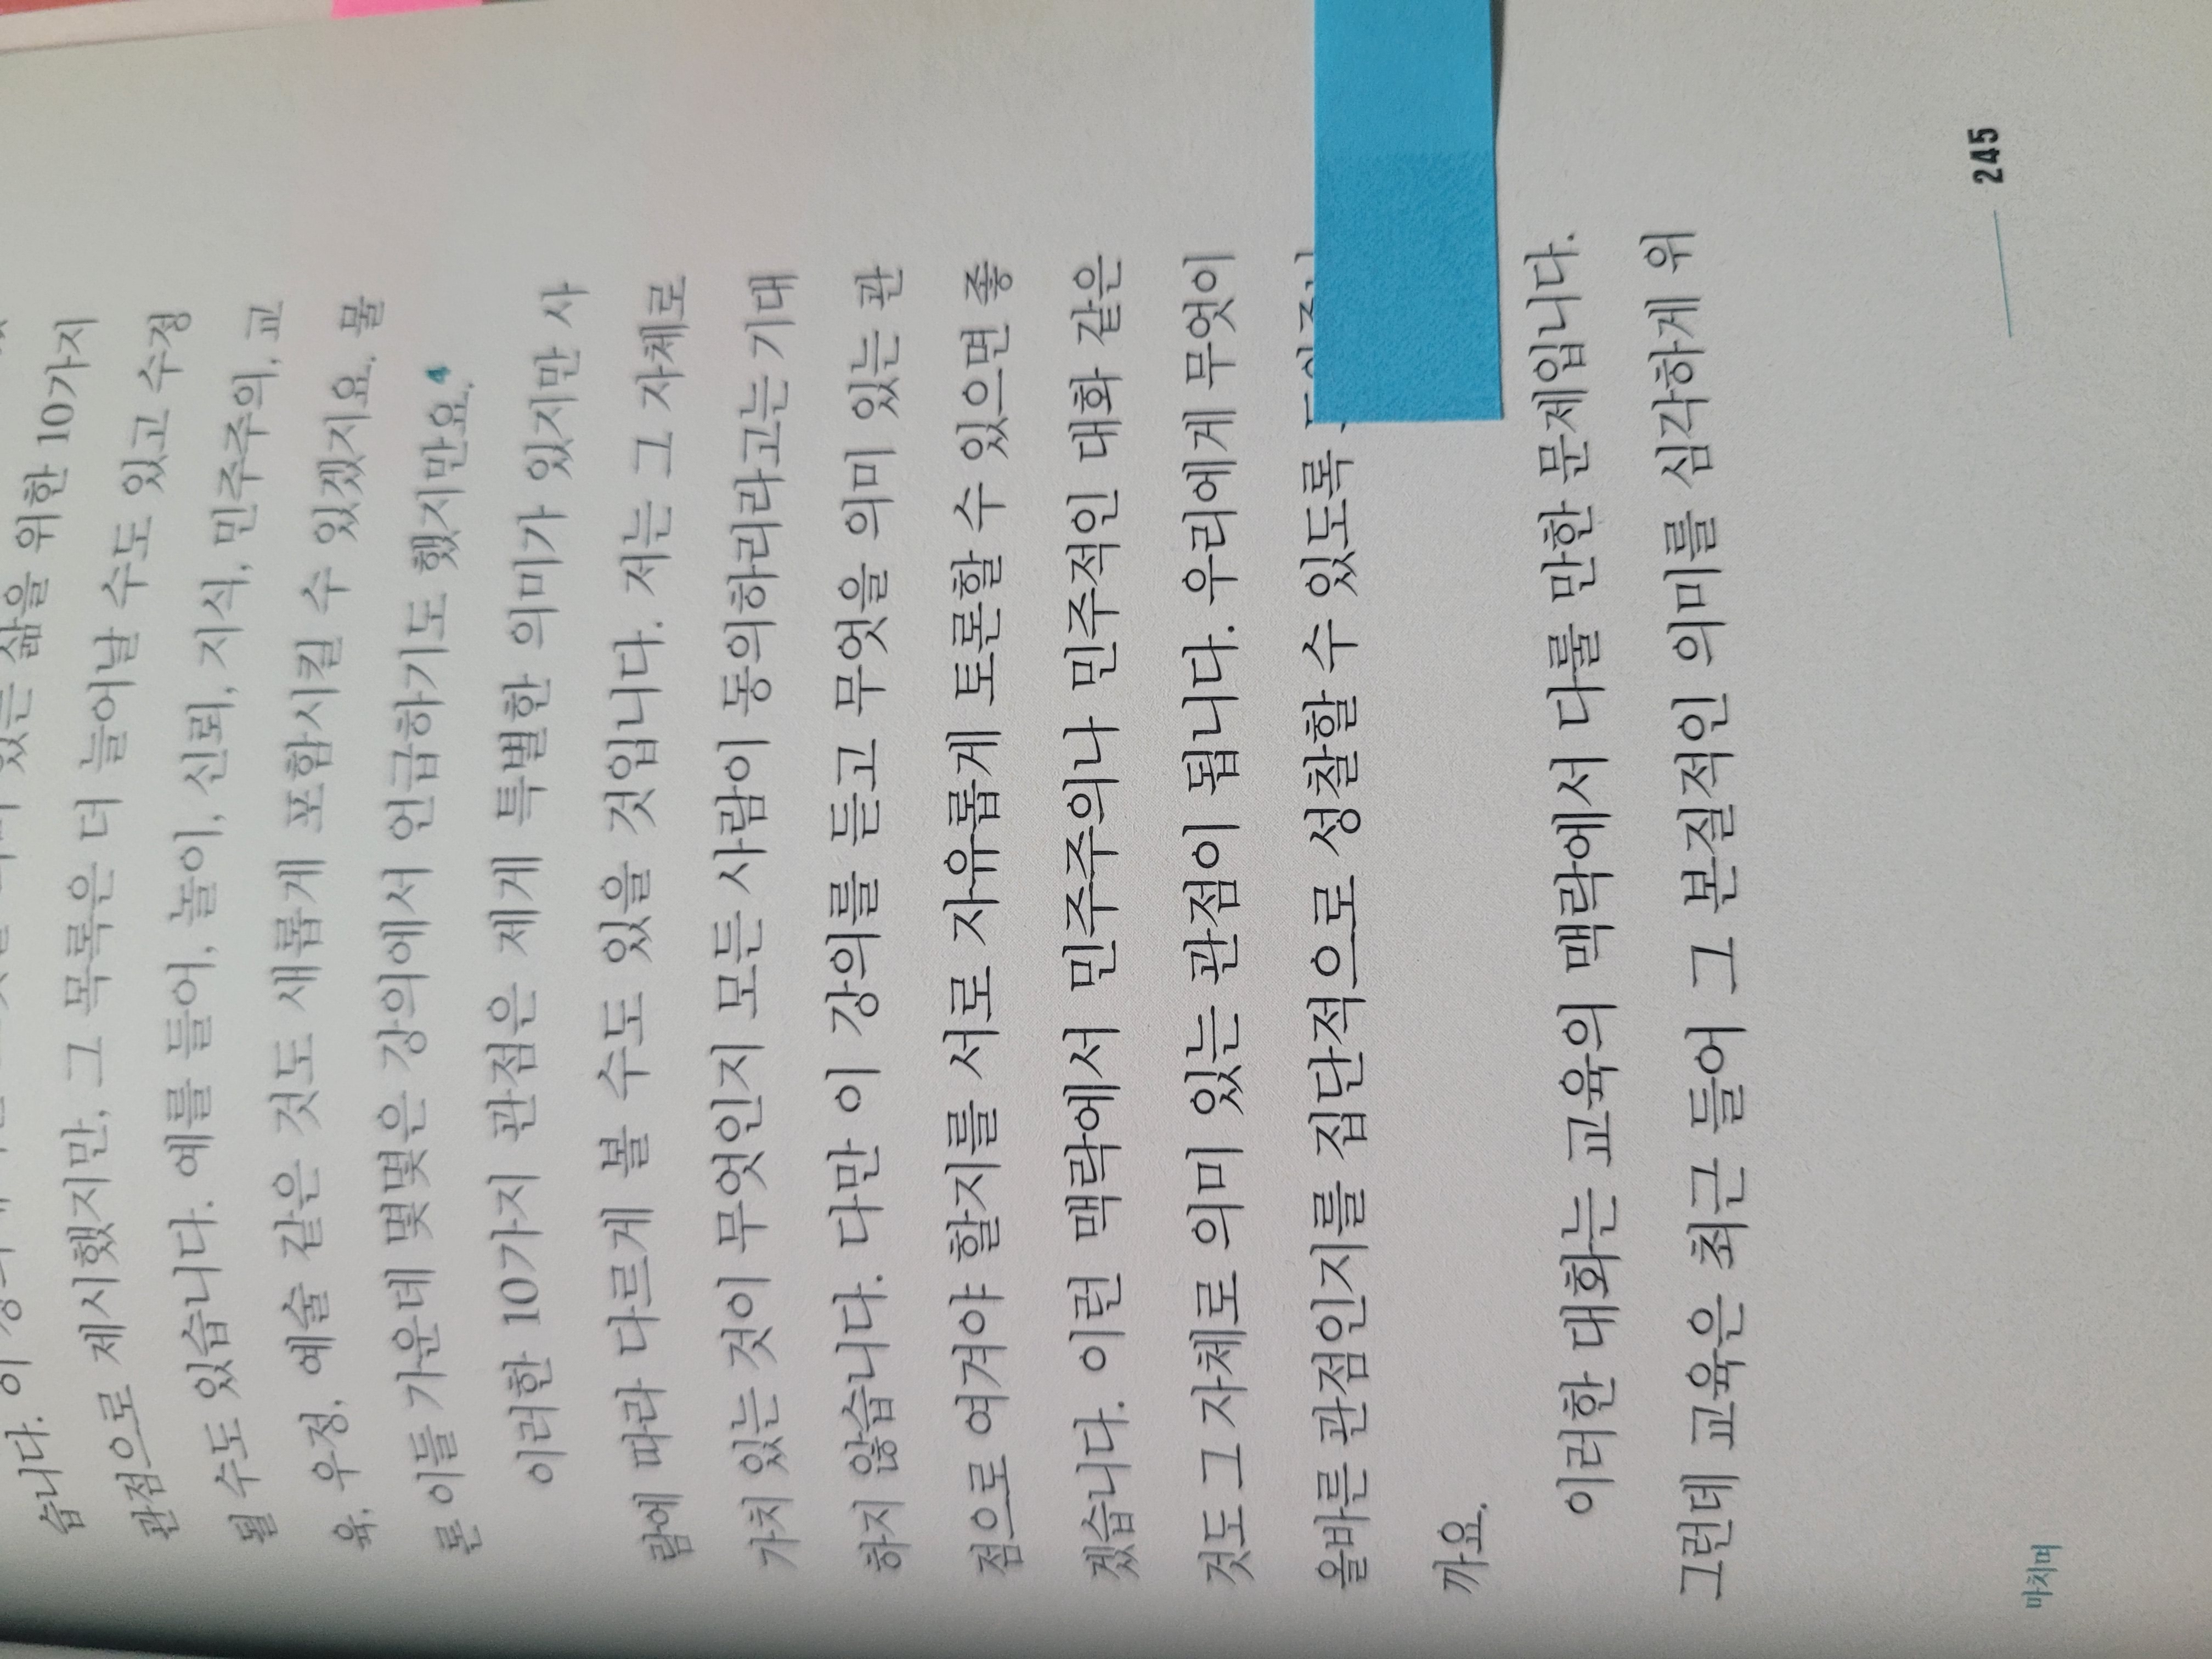 습니다. 이 있는 삶을 위한 10가지
관점으로 제시했지만, 그 목록은 더 늘어날 수도 있고 수정
될 수도 있습니다. 예를 들어, 놀이, 신뢰, 지식, 민주주의, 교
육, 우정, 예술 같은 것도 새롭게 포함시킬 수 있겠지요. 물
론 이들 가운데 몇몇은 강의에서 언급하기도 했지만요.4
이러한 10가지 관점은 제게 특별한 의미가 있지만 사
람에 따라 다르게 볼 수도 있을 것입니다. 저는 그 자체로
가치 있는 것이 무엇인지 모든 사람이 동의하리라고는 기대
하지 않습니다. 다만 이 강의를 듣고 무엇을 의미 있는 관
점으로 여겨야 할지를 서로 자유롭게 토론할 수 있으면 좋
겠습니다. 이런 맥락에서 민주주의나 민주적인 대화 같은
것도 그 자체로 의미 있는 관점이 됩니다. 우리에게 무엇이
올바른 관점인지를 집단적으로 성찰할 수 있도록
까요.
이러한 대화는 교육의 맥락에서 다룰 만한 문제입니다.
그런데 교육은 최근 들어 그 본질적인 의미를 심각하게 위
마치며
245